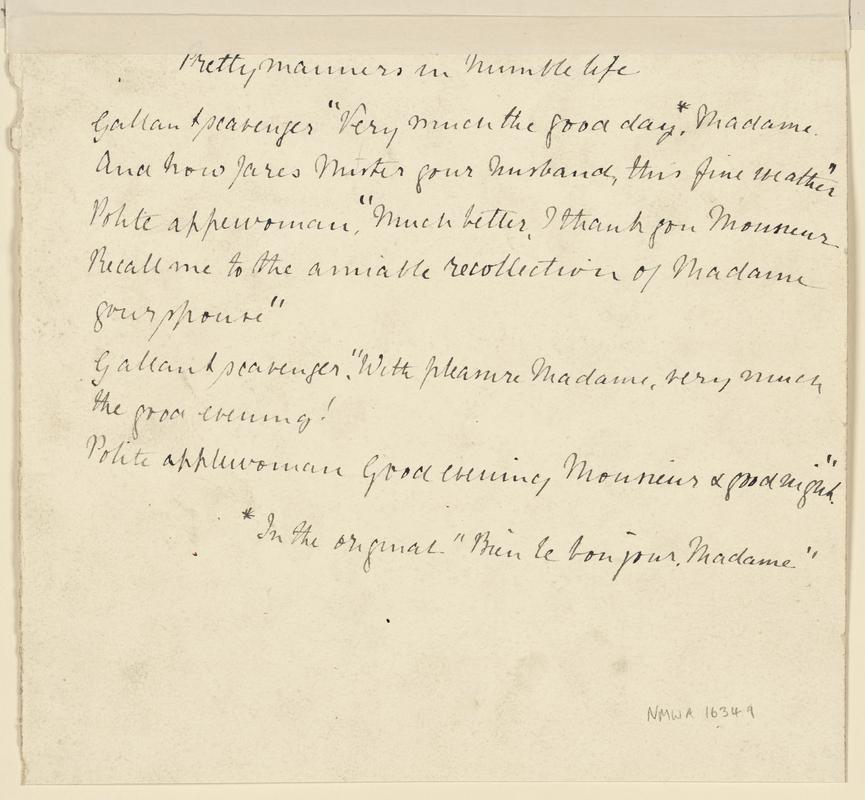 Pretty manners in humble life
Gallant scavenger "Very much the good day*, Madame.
And how fares Mister your husband, this fine weather"
Polite applewoman, "Much better, I thank you Monsieur
Recall me to the amiable recollection of Madame
your spouse"
Gallant scavenger, "With pleasure Madame, very much
the good evening!
Polite applewoman Good evening Monsieur & good night."
*In the original "Bien le bonjour, Madame"
NMWA 16349